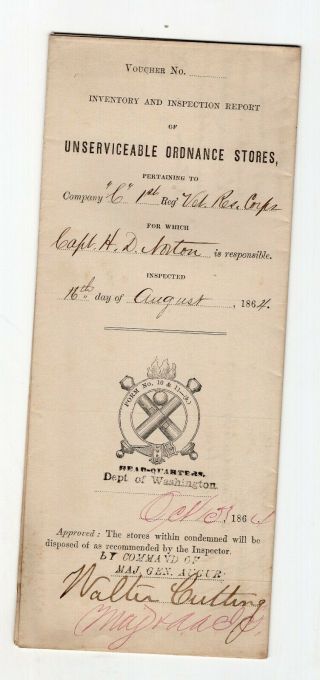 VOUCHER No.
INVENTORY AND INSPECTION REPORT
OF
UNSERVICEABLE ORDNANCE STORES,
PERTAINING TO
Company "C" 1st Reg' Vet. Res. Corps
FOR WHICH
Capt. H. D. Norton is responsible.
INSPECTED
16th day of August, 1864.
FORM No. 10 & 11—(A)
HEAD-QUARTERS,
Dept of Washington.
Oct 1864
Approved: The stores within condemned will be
disposed of as recommended by the Inspector.
BY COMMAND OF
MAJ. GEN. AUGUR
Walter Cutting
Maj & ADC